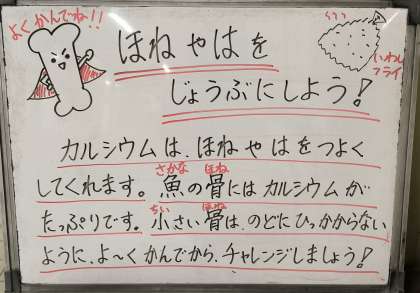 よくかんでね!!
ほねやはを
じょうぶにしよう!
いわし
フライ
カルシウムは、ほねやはをつよく
してくれます。魚の骨にはカルシウムが
さかな ほね
たっぷりです。小さい骨は、のどにひっかからない
ちい ほね
ように、よ〜くかんでから、チャレンジしましょう!